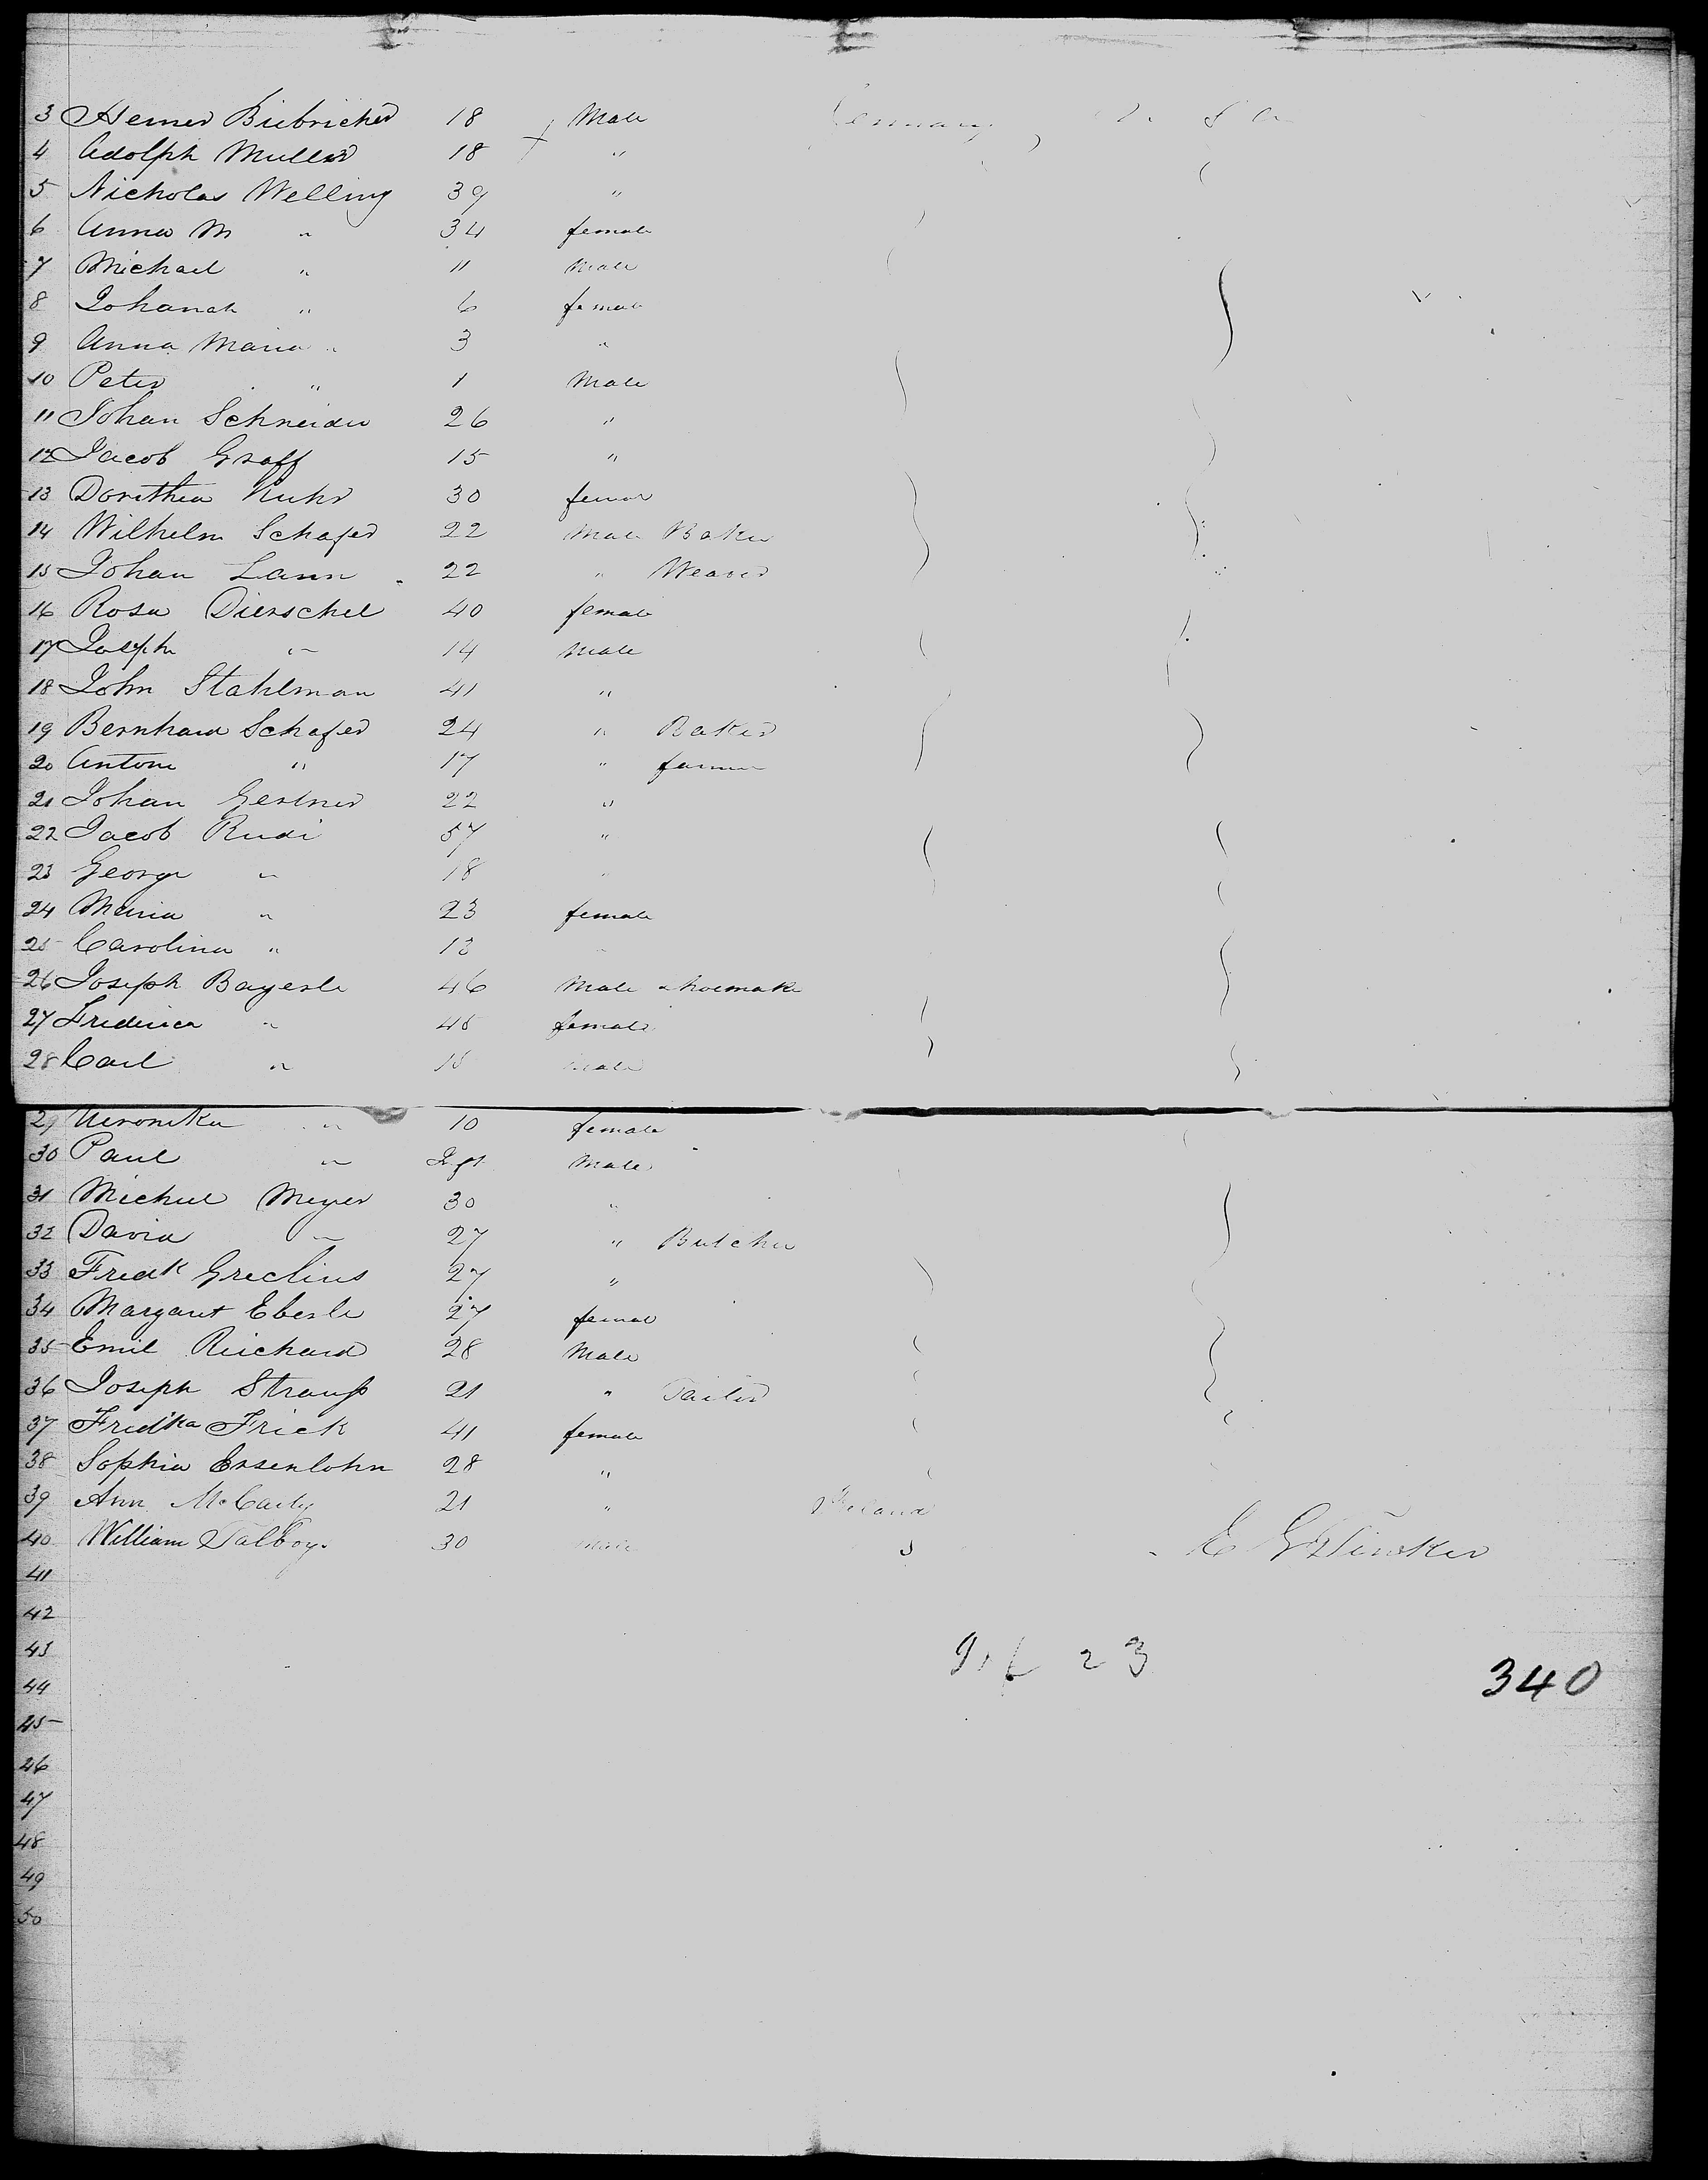 3 Heiner Biebricher 18 Male Germany
4 Adolph Muller 18 "
5 Nicholas Welling 39 "
6 Anna M " 34 female
7 Michael " 11 Male
8 Johanah " 6 female
9 Anna Maria " 3 "
10 Peter " 1 Male
11 Johan Schneider 26 "
12 Jacob Graff 15 "
13 Dorithea 30
14 Wilhelm Schafer 22 Male Baker
15 Johan Lann 22 " Weaver
16 Rosa Dierschel 40 female
17 Joseph " 14 Male
18 John Stahlman 41 "
19 Bernhard Schafer 24 " Baker
20 Anton " 17 " farmer
21 Johan Gerstner 22 "
22 Jacob Rudi 57 "
23 George " 18 "
24 Maria " 23 female
25 Carolina " 13
26 Joseph Bayerle 46 Male shoemake
27 Frederica " 45 female
28 Carl " 15 Male
29 Veronika " 10 female
30 Paul " Male
31 Michel Meyer 30 "
32 David " 27 " Butcher
33 Fredk Greclius 27 "
34 Margaret Eberle 27 female
35 Emil Reichard 28 Male
36 Joseph Strauß 21 " Tailor
37 Fredka Frick 41 female
38 Sophia Essenlohn 28 "
39 Ann McCarty 21 " Ireland
40 William Talboys 30 Male E G Tinker
41
42
43 23
44 340
45
46
47
48
49
50